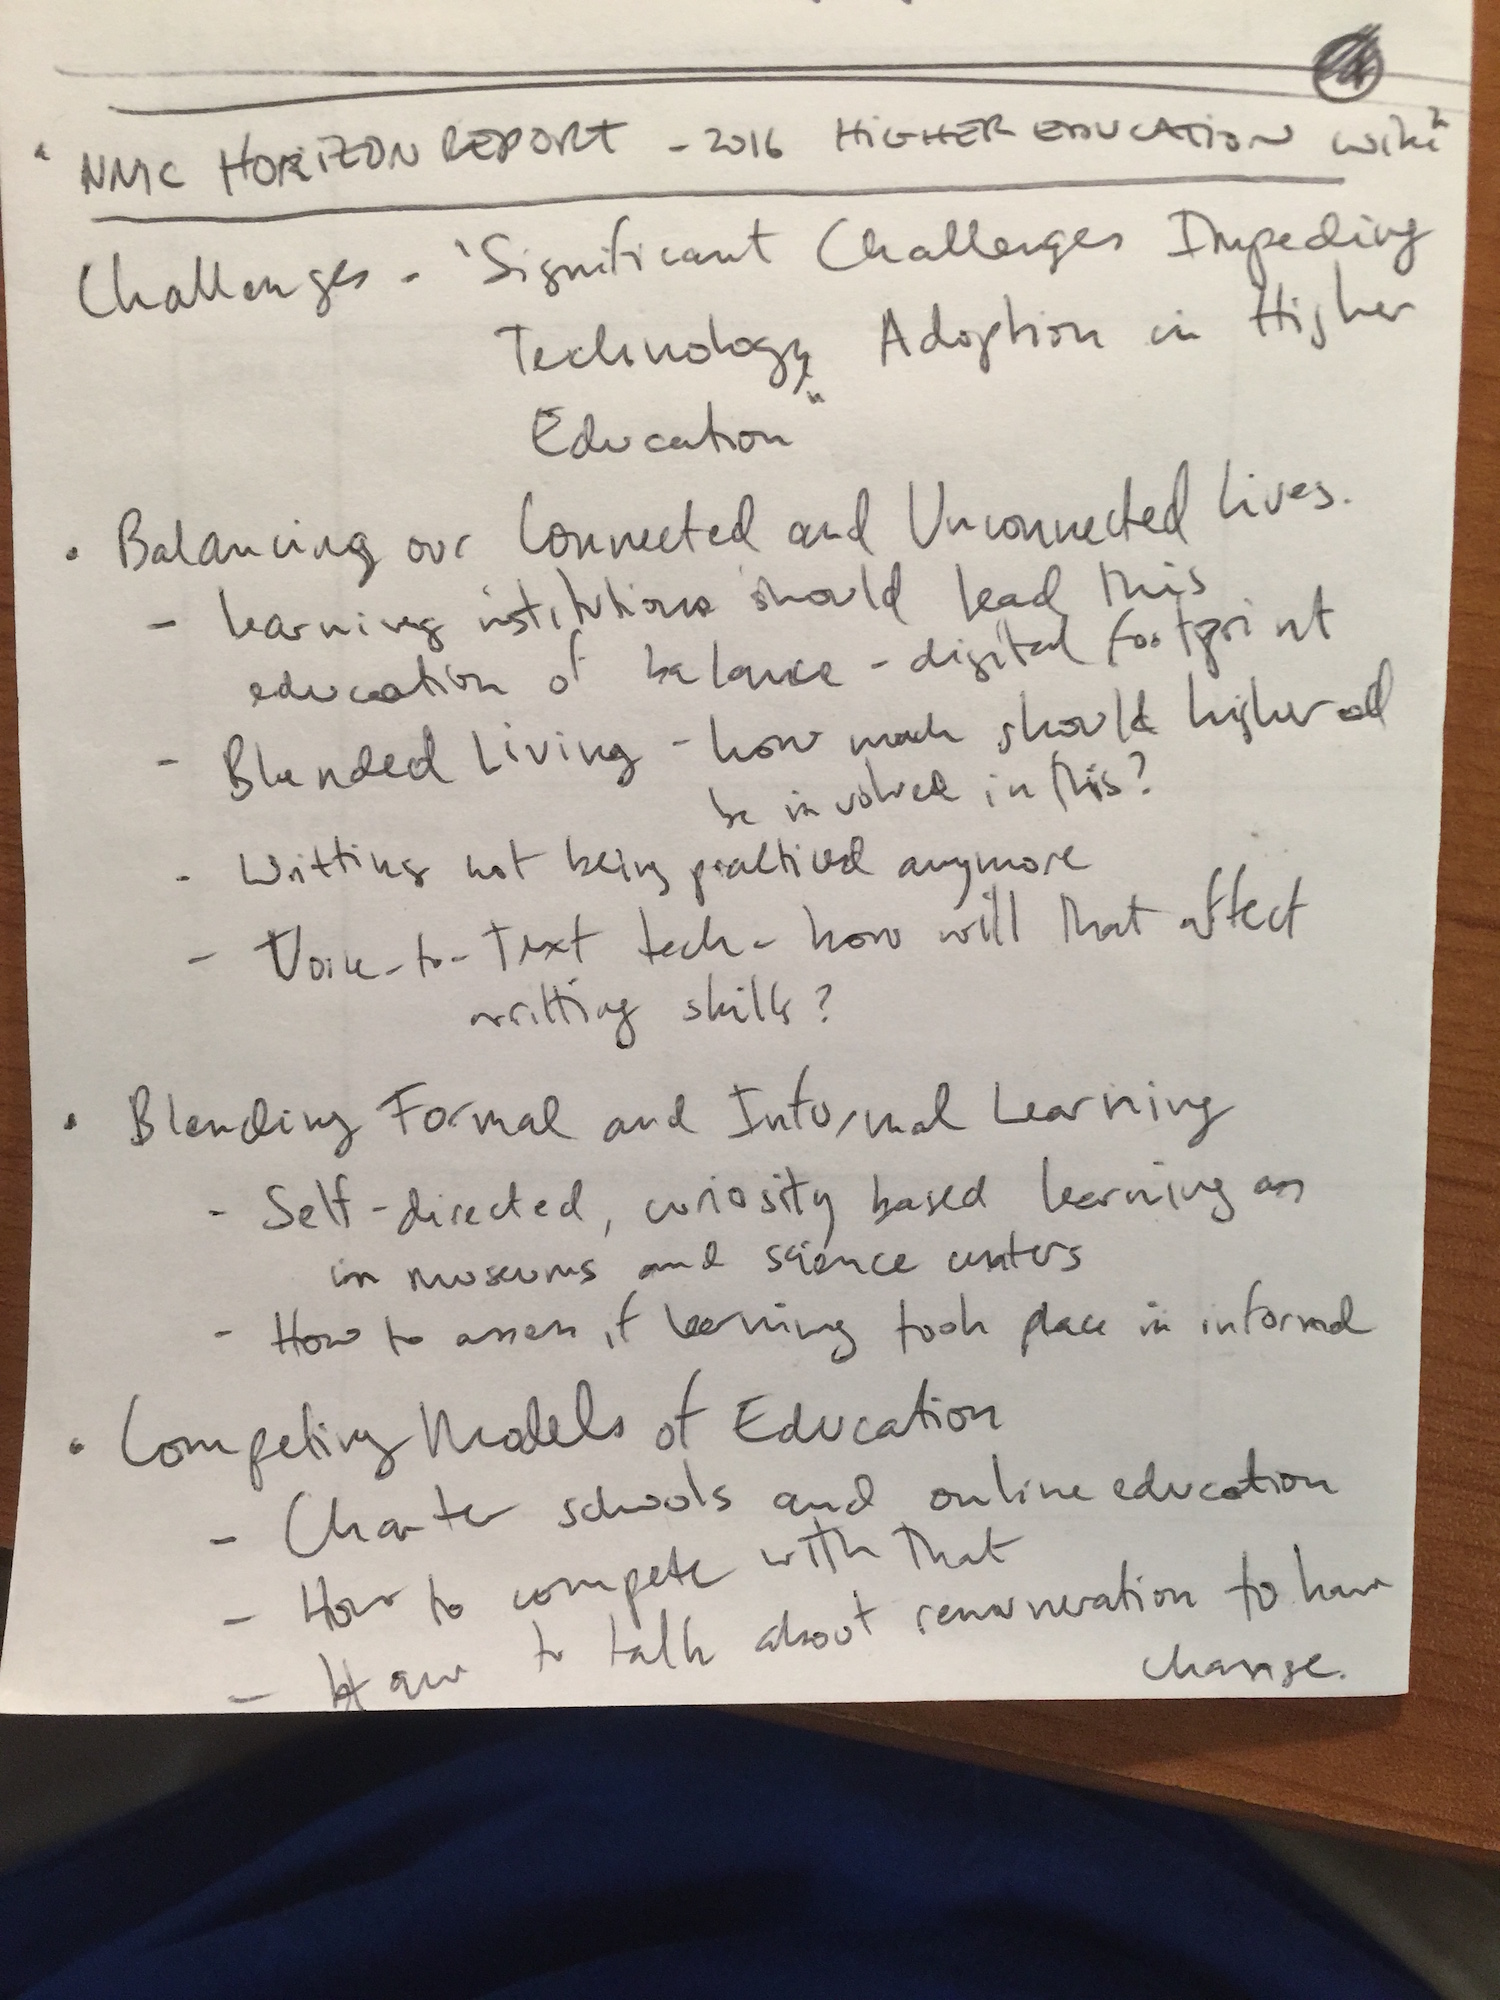 "NMC HORIZON REPORT - 2016 HIGHER EDUCATION Wiki"
Challenges - "Significant Challenges Impeding
Technology Adoption in Higher
Education"
• Balancing our Connected and Unconnected Lives.
- learning institutions should lead this
education of balance - digital footprint
- Blended Living - how much should higher ed
be involved in this?
- Writting not being practiced anymore
- Voice-to-Text tech - how will that affect
writting skills?
• Blending Formal and Informal Learning
- Self-directed, curiosity based learning as
in museums and science centers
- How to assess if learning took place in informal
• Competing Models of Education
- Charter schools and online education
- How to compete with that
- How to talk about remuneration to have
change.